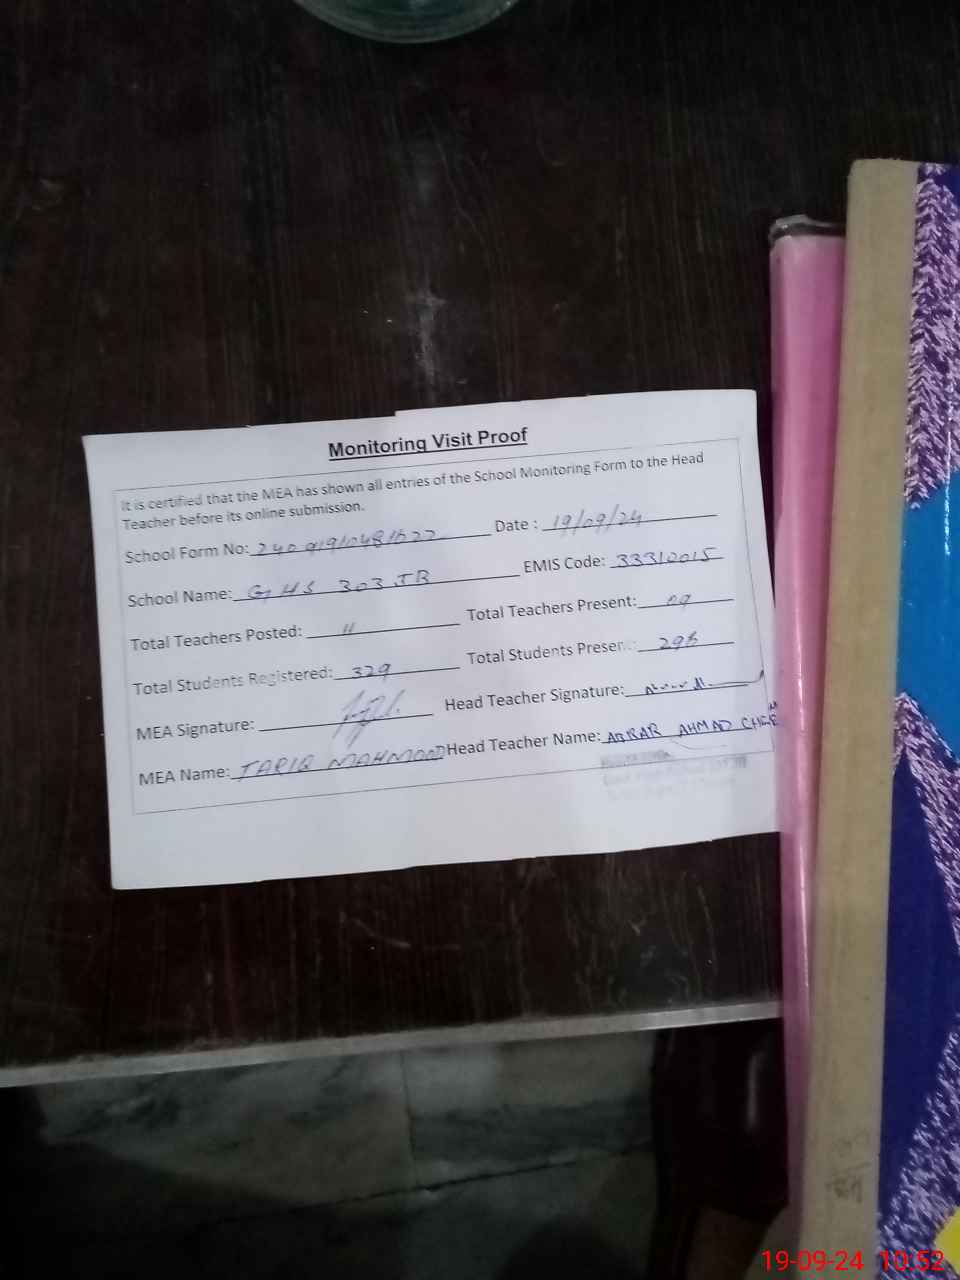 Monitoring Visit Proof
It is certified that the MEA has shown all entries of the School Monitoring Form to the Head
Teacher before its online submission.
School Form No: Date : 19/09/24
School Name: GHS 303 JB EMIS Code: 33310015
Total Teachers Posted: 11 Total Teachers Present: 09
Total Students Registered: 329 Total Students Present:
MEA Signature: Head Teacher Signature:
MEA Name: TARIQ MAHMOOD Head Teacher Name: ABRAR AHMAD
19-09-24 10:52